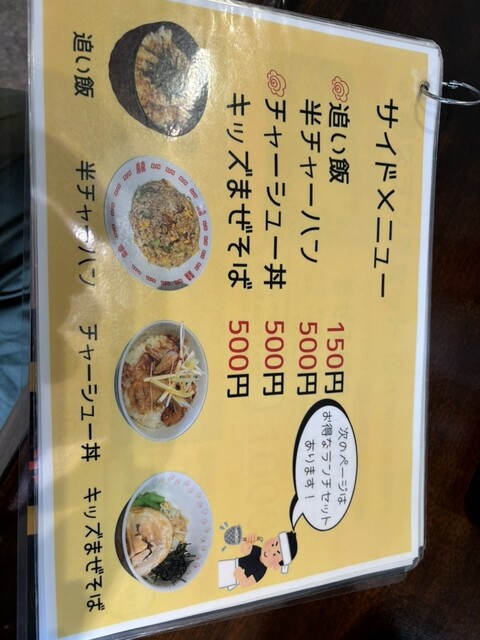 サイドメニュー
追い飯 150円
半チャーハン 500円
チャーシュー丼 500円
キッズまぜそば 500円
次のページは
お得なランチセット
あります！
追い飯
半チャーハン
チャーシュー丼
キッズまぜそば